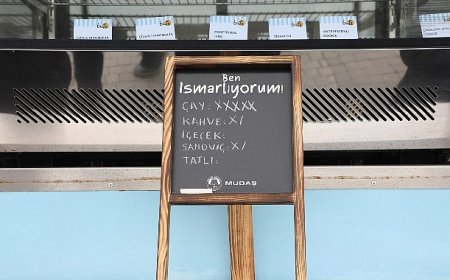 Ben
Ismarlıyorum!
ÇAY: XXXXX
KAHVE: X/
İÇECEK:
SANDVİÇ: X/
TATLI:
MUDAŞ